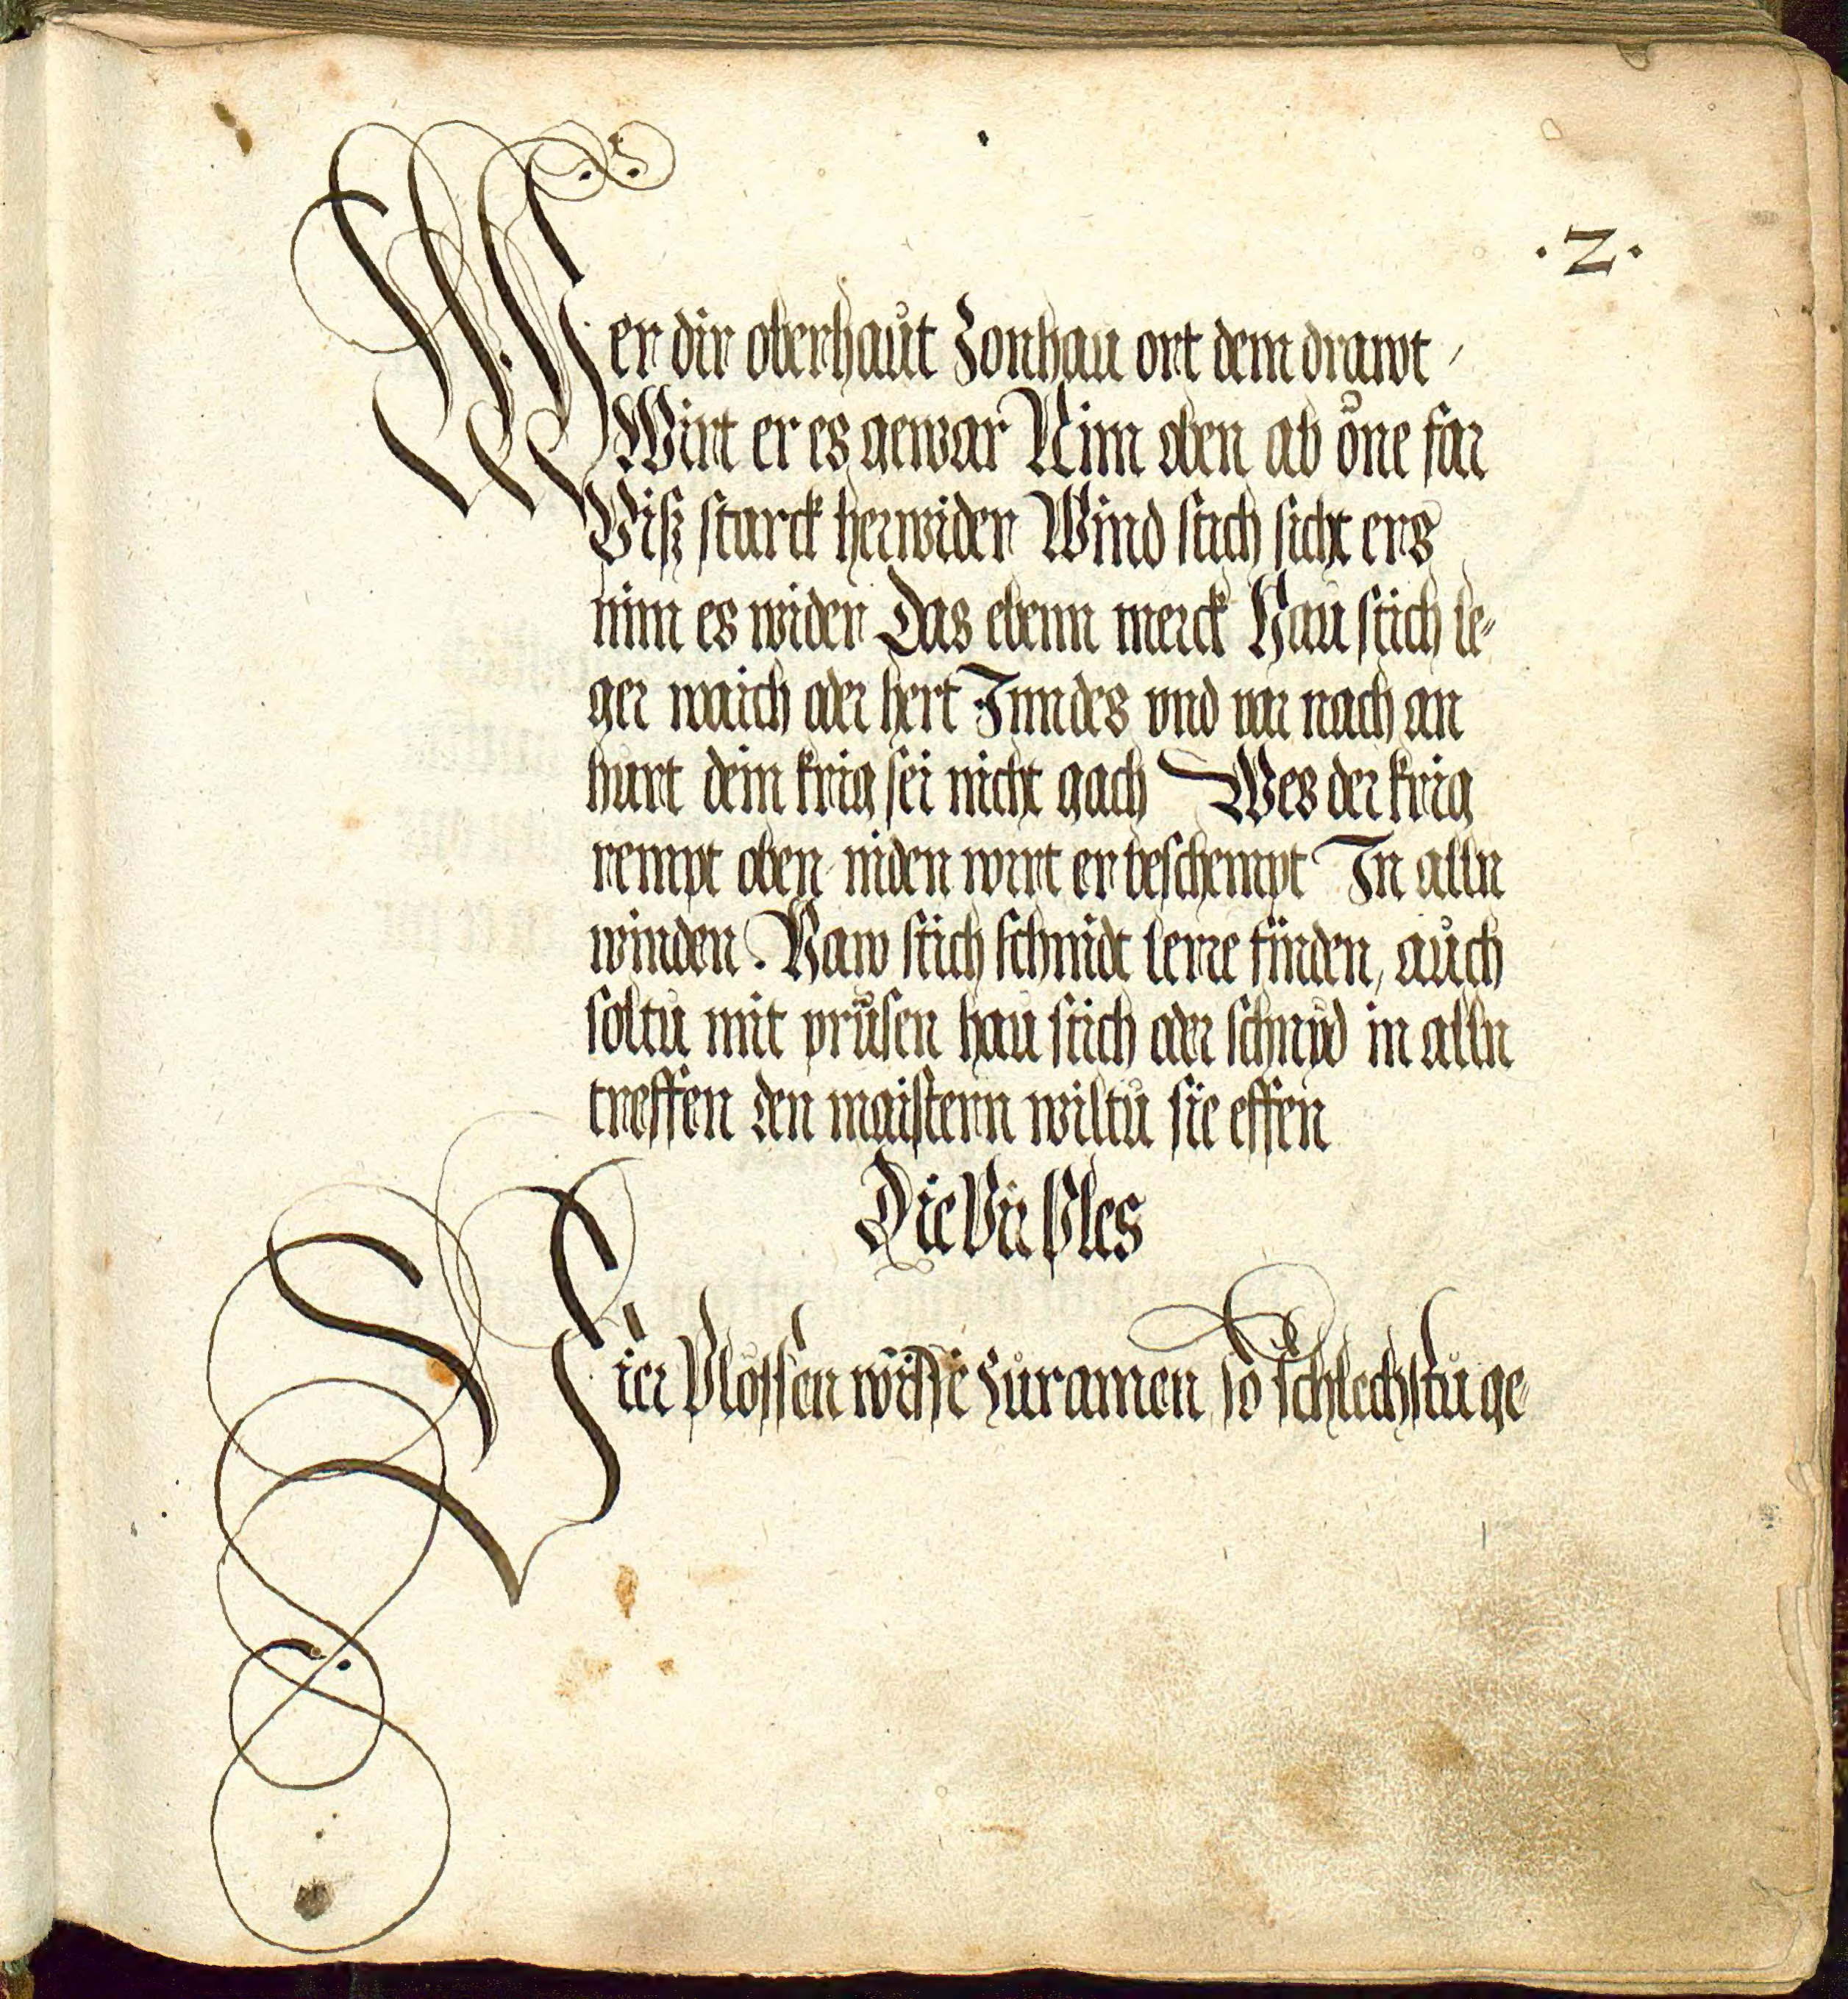 .2.
Wer dir oberhaut Zonhau ort dem drawt /
Wirt er es gewar Nim oben ab one far
Biß starck herwider Wind stich sicht ers
nim es wider Das ebenn merck Hau stich le-
ger waich oder hert Inndes vnd var nach an
hurt dein krig sei nicht gach Wes der krig
rempt oben niden wirt er beschempt In alln
winden . Haw stich schnidt lerre finden, auch
soltu mit prüfen hau stich oder schnyd in alln
treffen den maistern wiltu sie effen
Die Vir Ples
Vier Plössen wisse zu ramen so schlechstu ge-